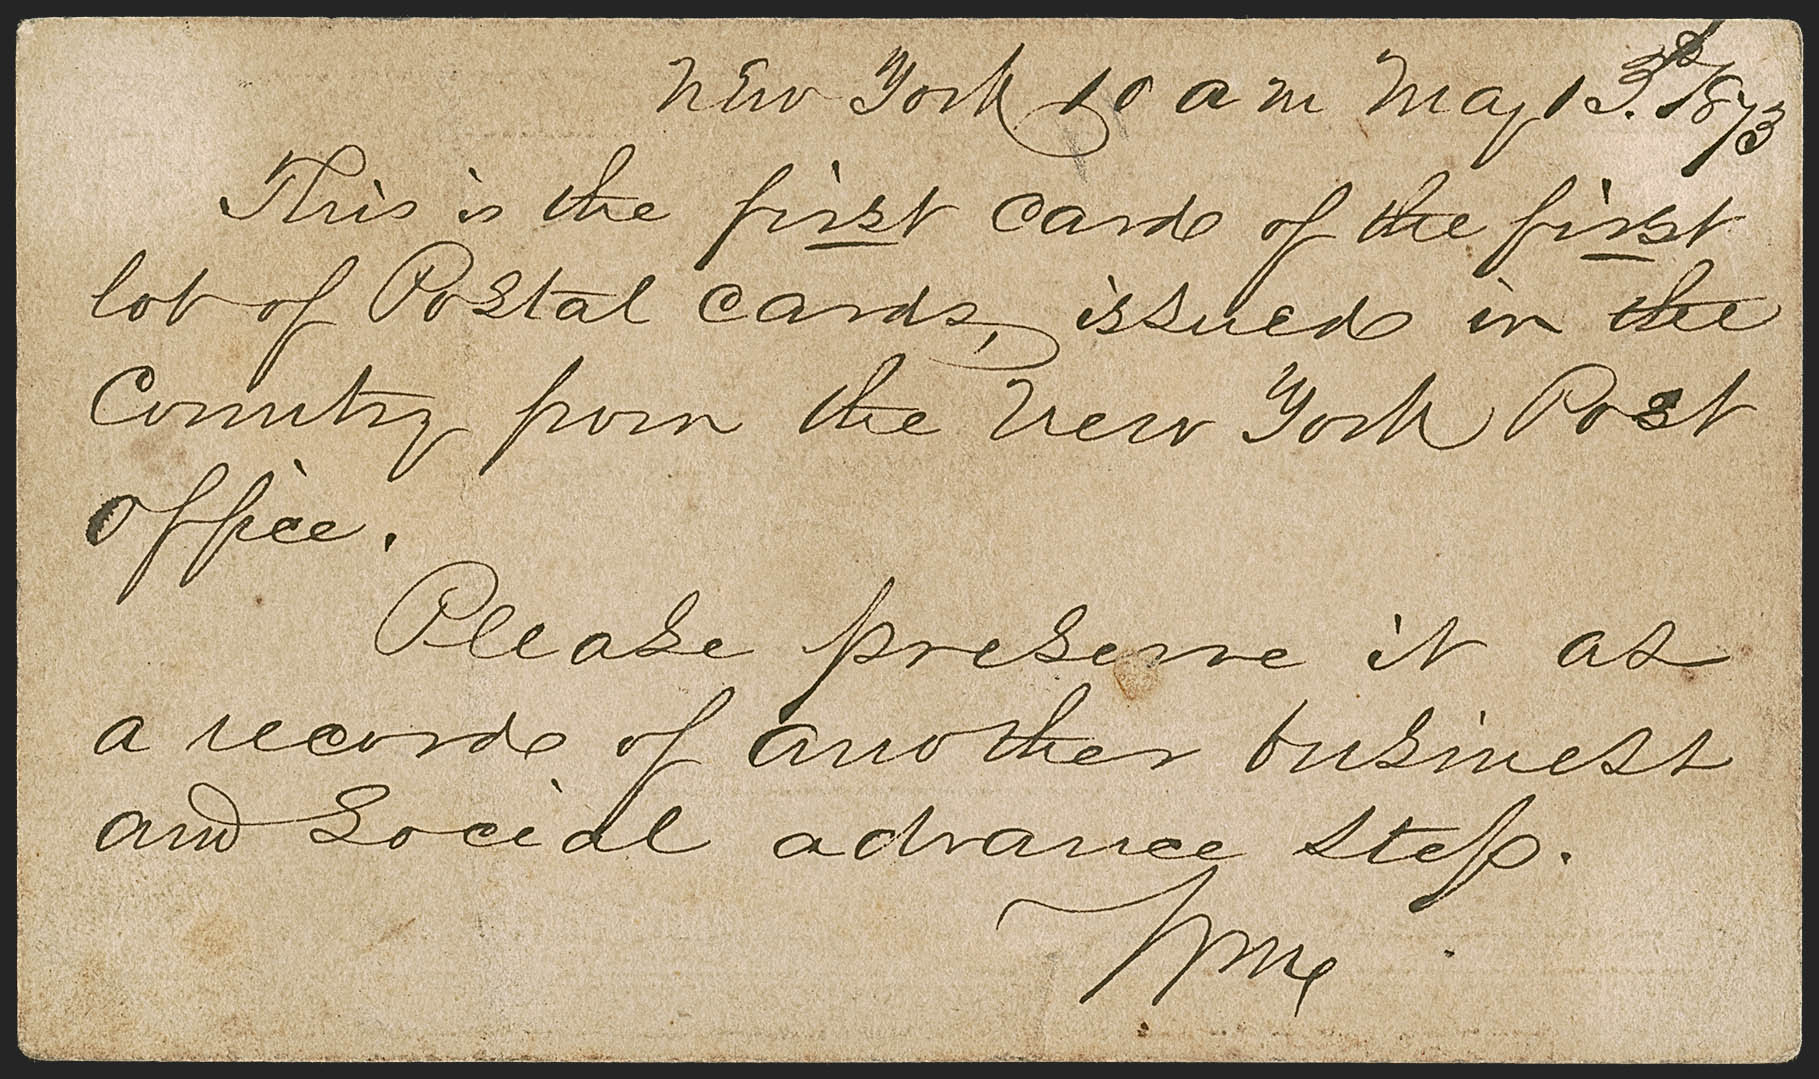 New York 10 am May 13. 1873
This is the first card of the first
lot of Postal cards, issued in the
Country from the New York Post
Office.
Please preserve it as
a record of another business
and Social advance step.
Wm